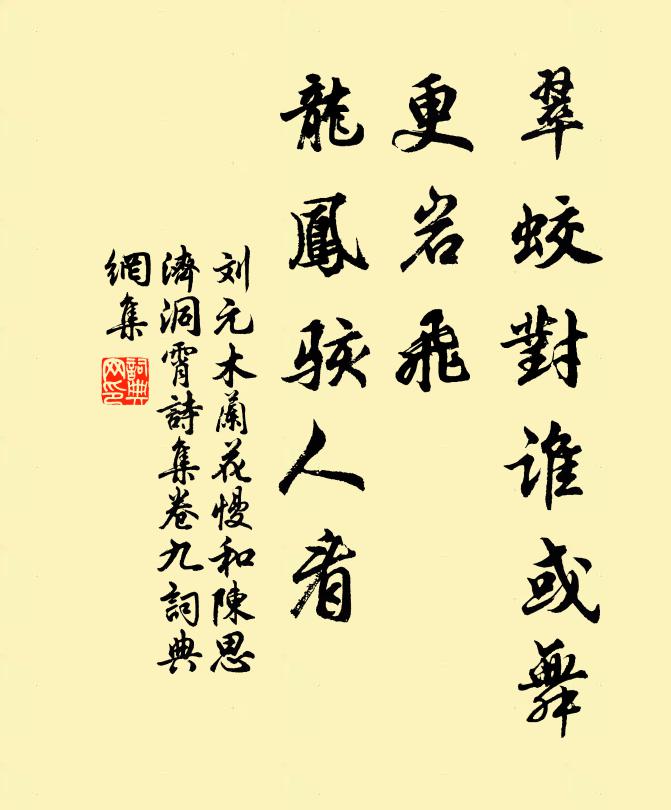 翠蛟對谁或舞
更岩飛
龍鳳骇人者
刘元木蘭花慢和陳思
濟洞霄詩集卷九詞典
網集
詞典
网印